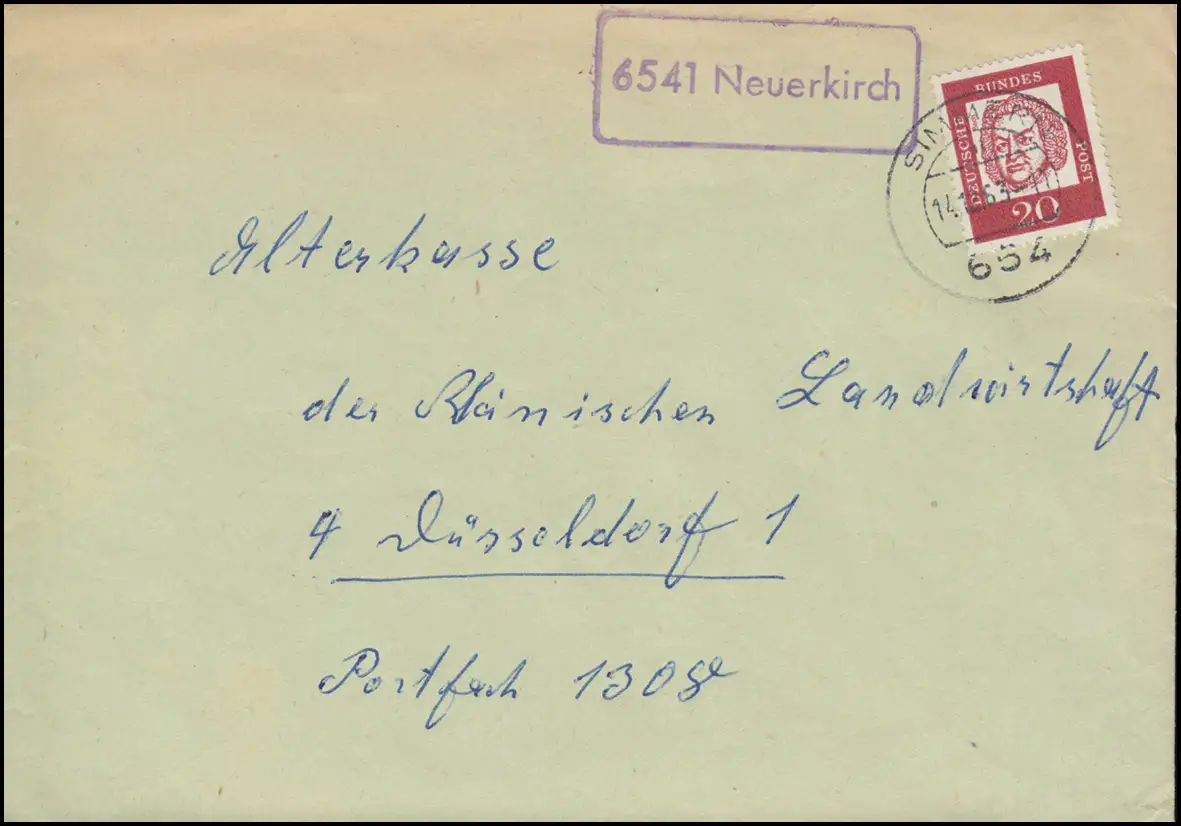 6541 Neuerkirch
DEUTSCHE BUNDES POST
20
654
Alterkasse
der Rhänischen Landwirtshaft
4 Düsseldorf 1
Postfach 1308